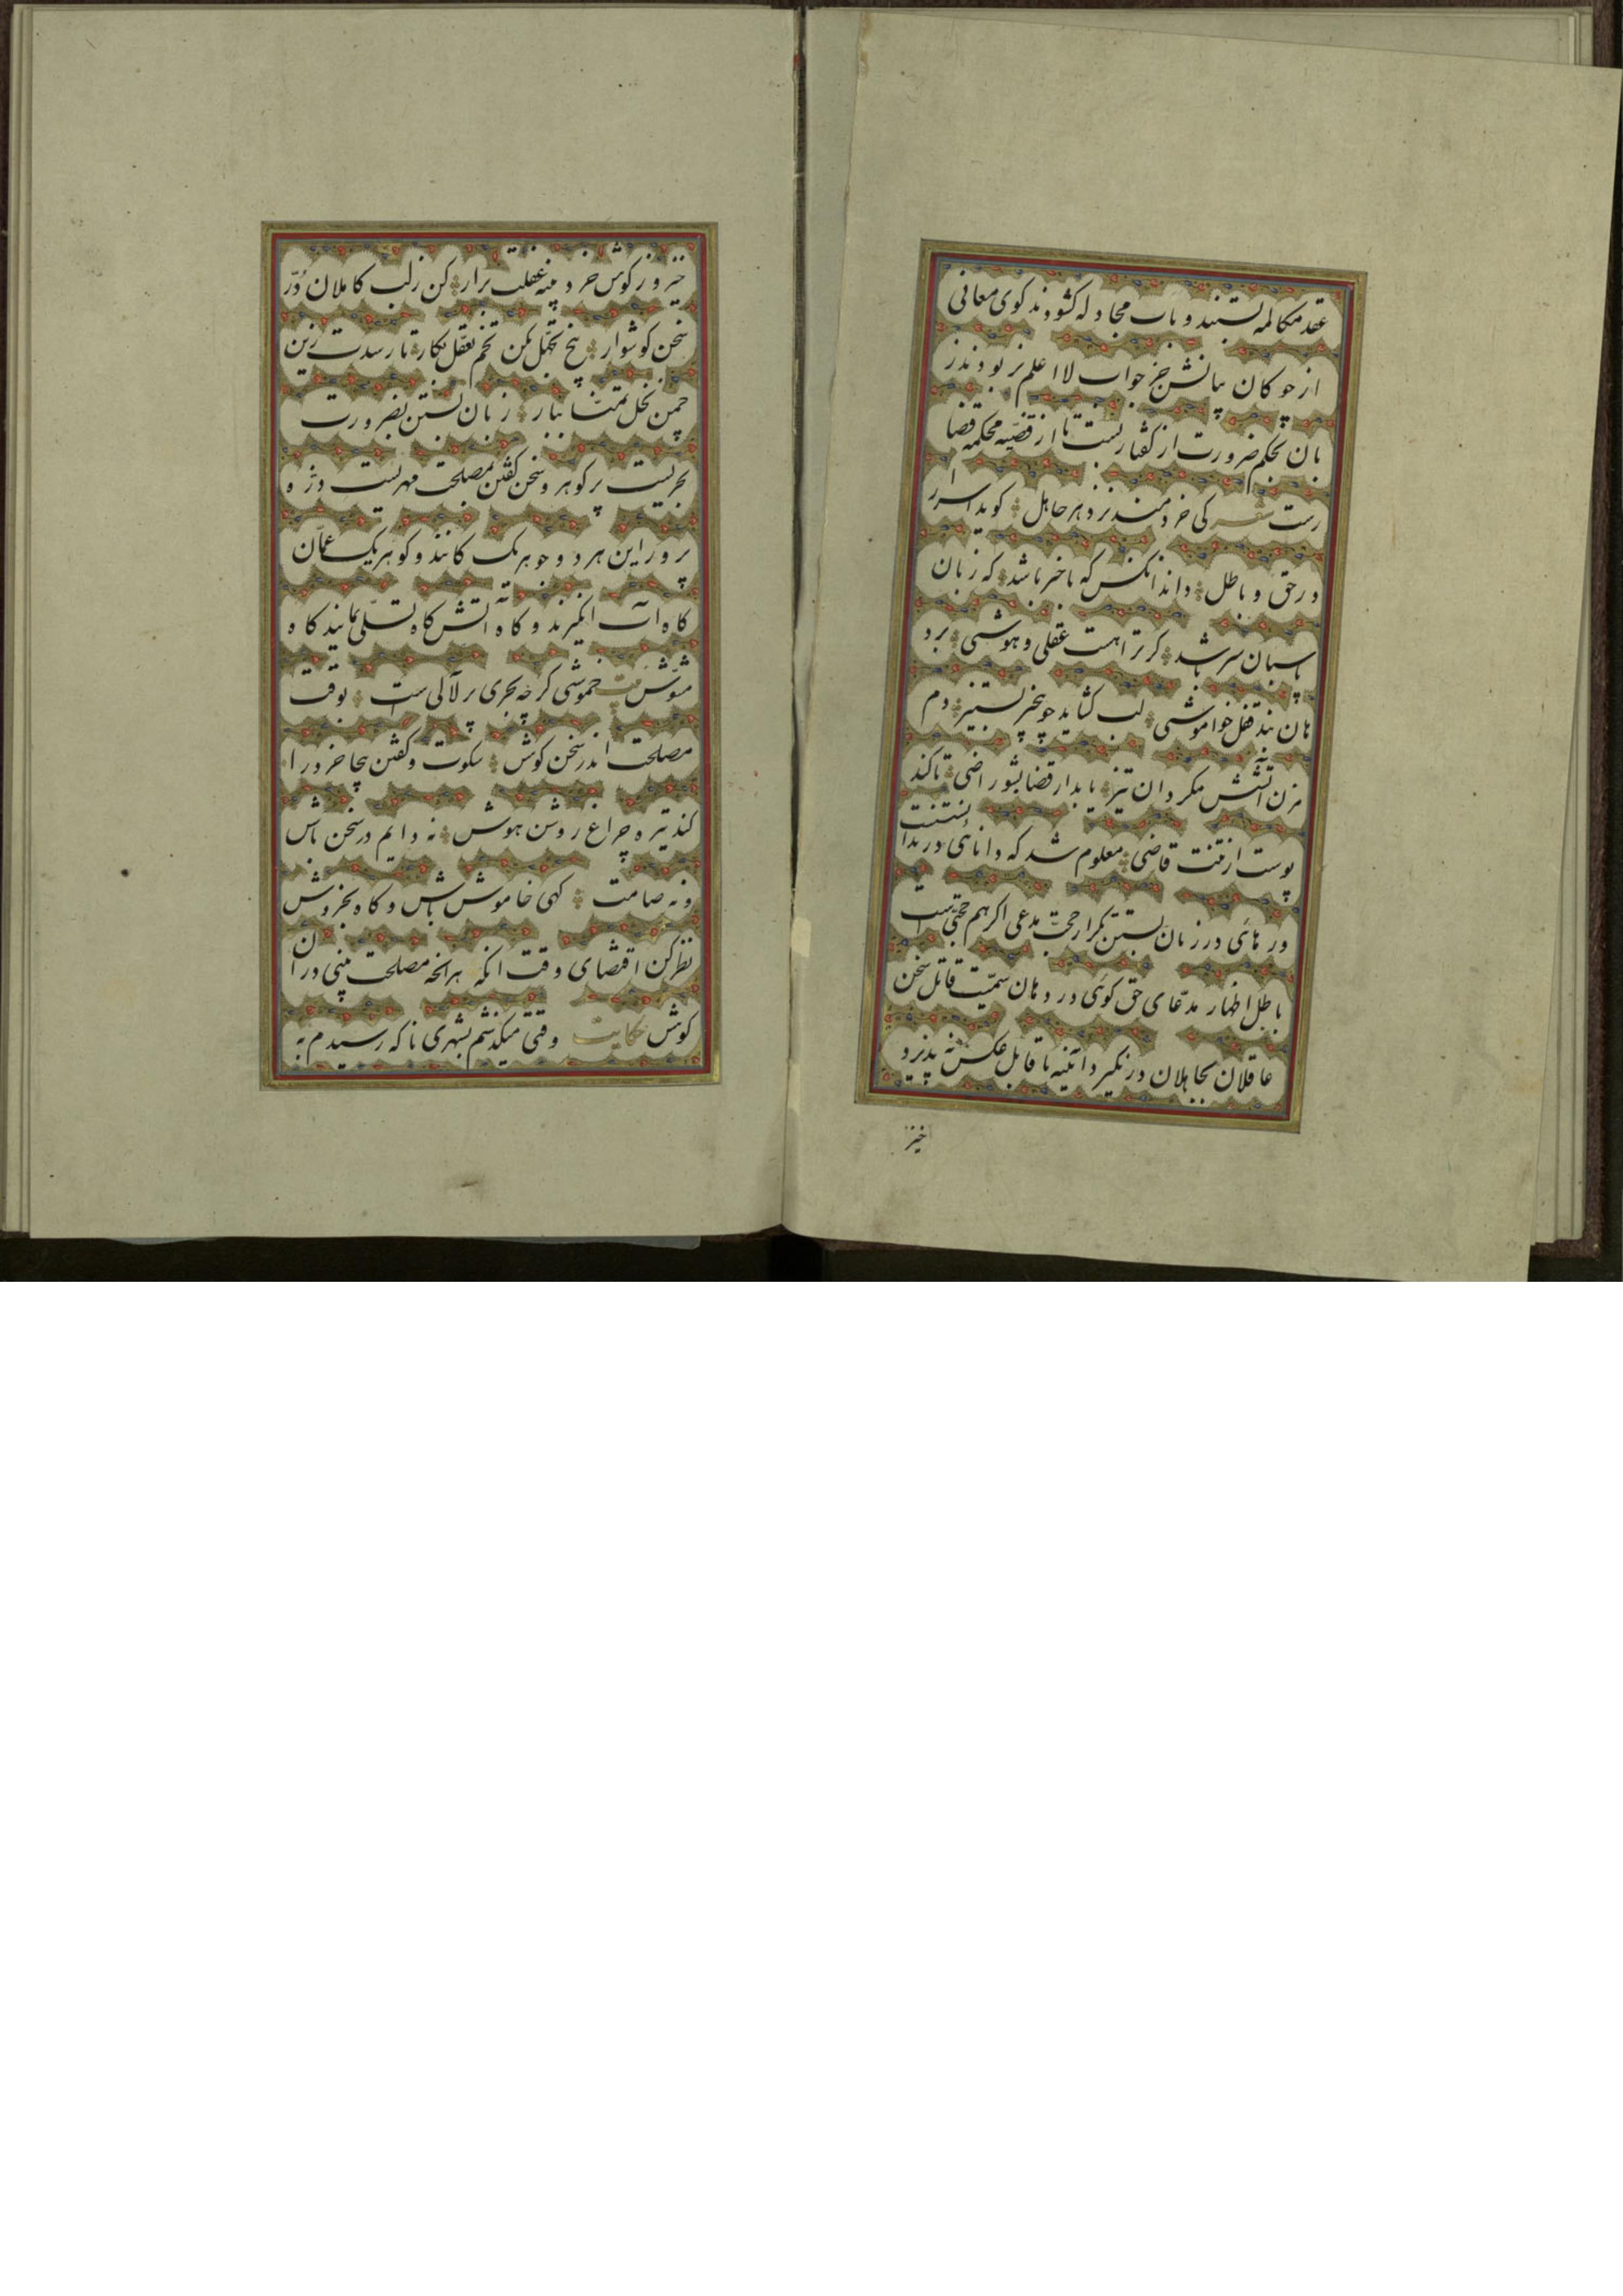 عقد مکالمه بستند و باب مجادله کشودند کوی معانی
از جوکان بیانش جز جواب لا اعلم نربودند ز
بان بحکم ضرورت از کفتار بست تا از قضیه محکمه قضا
رست شعر کی خردمند نزد هر جاهل کوید اسرار
در حق و باطل داند انکس که با خبر باشد که زبان
پاسبان سر باشد کر ترا هست عقلی و هوشی بر د
هان بند قفل خواموشی لب کشاید چو بیخبر بستیز دم
مزن اتشش مکردان تیز یا بدار قضا بشو راضی تا کند
پوست از تنت قاضی معلوم شد که دانائی در ندانستنست
و رهائی در زبان بستن تکرار حجت مدعی اکر هم حجتی است
باطل اظهار مدعای حق کوئی در دهان سمیت قاتل سخن
عاقلان بجاهلان درنکیرد و ائینه ناقابل عکس نه پذیرد
خیز
خیز و ز کوش خرد پنبه غفلت برار کن ز لب کاملان در
سخن کوشوار بیخ تجهل بکن تخم تعقل بکار تا رسدت زین
چمن نخل تمنا ببار زبان بستن بضرورت
بحریست پر کوهر و سخن کفتن بمصلحت مهریست ذره
پرور این هر دو جوهر یک کانند و کوهر یک عمان
کاه اب انکیزند و کاه اتش کاه تسلی نمایند کاه
مشوش بیت خموشی کرچه بحری پر لآلی است بوقت
مصلحت اندر سخن کوش سکوت و کفتن بیجا خرد را
کند تیره چراغ روشن هوش نه دایم در سخن باش
و نه صامت کهی خاموش باش و کاه بخروش
نظر کن اقتضای وقت انکه هر انچه مصلحت بینی در ان
کوش حکایت وقتی میکذشتم بشهری ناکه رسیدم به